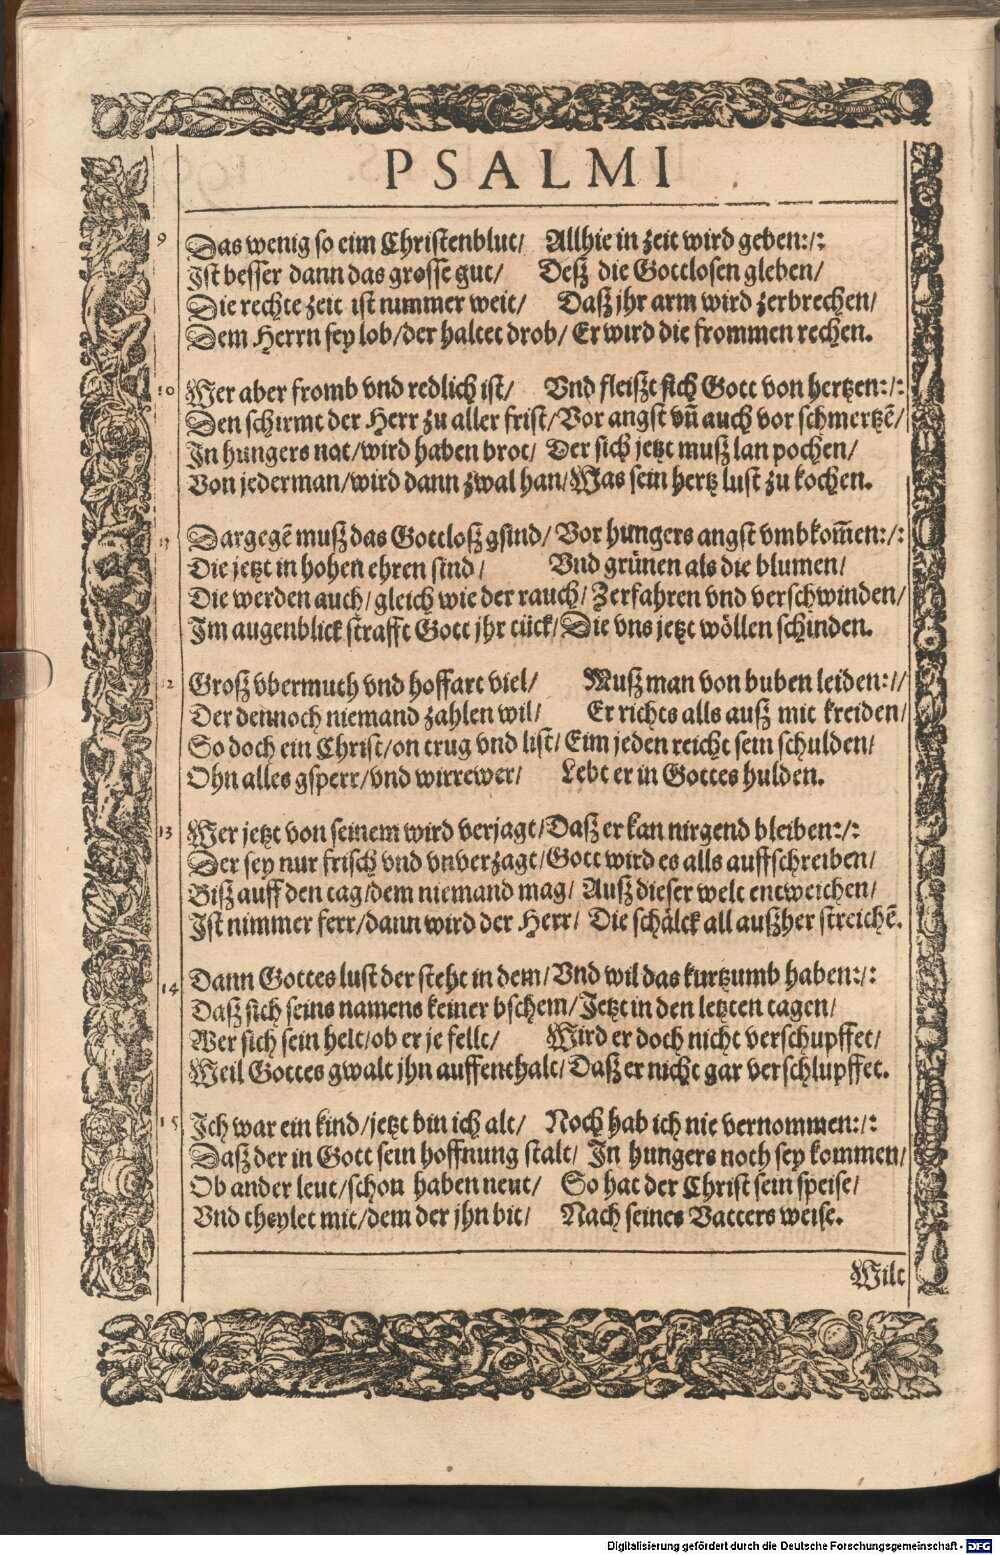 PSALMI
9 Das wenig so eim Christenblut/ Allhie in zeit wird geben:/:
Ist besser dann das grosse gut/ Desz die Gottlosen gleben/
Die rechte zeit ist nimmer weit/ Dasz jhr arm wird zerbrechen/
Dem Herrn sey lob/der haltet drob/ Er wird die frommen rechen.
10 Wer aber fromb vnd redlich ist/ Vnd fleiszt sich Gott von hertzen:/:
Den schirmt der Herr zu aller frist/Vor angst vñ auch vor schmertzẽ/
In hungers not/wird haben brot/ Der sich jetzt musz lan pochen/
Von jederman/wird dann zwal han/Was sein hertz lust zu kochen.
11 Dargegẽ musz das Gottlosz gsind/Vor hungers angst vmbkom̃en:/:
Die jetzt in hohen ehren sind/ Vnd grünen als die blumen/
Die werden auch/gleich wie der rauch/Zerfahren vnd verschwinden/
Im augenblick strafft Gott jhr tück/Die vns jetzt wöllen schinden.
12 Grosz vbermuth vnd hoffart viel/ Musz man von buben leiden://
Der dennoch niemand zahlen wil/ Er richts alls ausz mit kreiden/
So doch ein Christ/on trug vnd list/Eim jeden reicht sein schulden/
Ohn alles gsperr/vnd wirrewer/ Lebt er in Gottes hulden.
13 Wer jetzt von seinem wird verjagt/Dasz er kan nirgend bleiben:/:
Der sey nur frisch vnd vnverzagt/Gott wird es alls auffschreiben/
Bisz auff den tag/dem niemand mag/ Ausz dieser welt entweichen/
Ist nimmer ferr/dann wird der Herr/ Die schälck all auszher streichẽ.
14 Dann Gottes lust der steht in dem/Vnd wil das kurtzumb haben:/:
Dasz sich seins namens keiner bschem/Jetzt in den letzten tagen/
Wer sich sein helt/ob er je fellt/ Wird er doch nicht verschupffet/
Weil Gottes gwalt jhn auffenthalt/Dasz er nicht gar verschlupffet.
15 Ich war ein kind/jetzt bin ich alt/ Noch hab ich nie vernommen:/:
Dasz der in Gott sein hoffnung stalt/ In hungers noch sey kommen/
Ob ander leut/schon haben neut/ So hat der Christ sein speise/
Vnd theylet mit/dem der jhn bit/ Nach seines Vatters weise.
Wilt
Digitalisierung gefördert durch die Deutsche Forschungsgemeinschaft - DFG